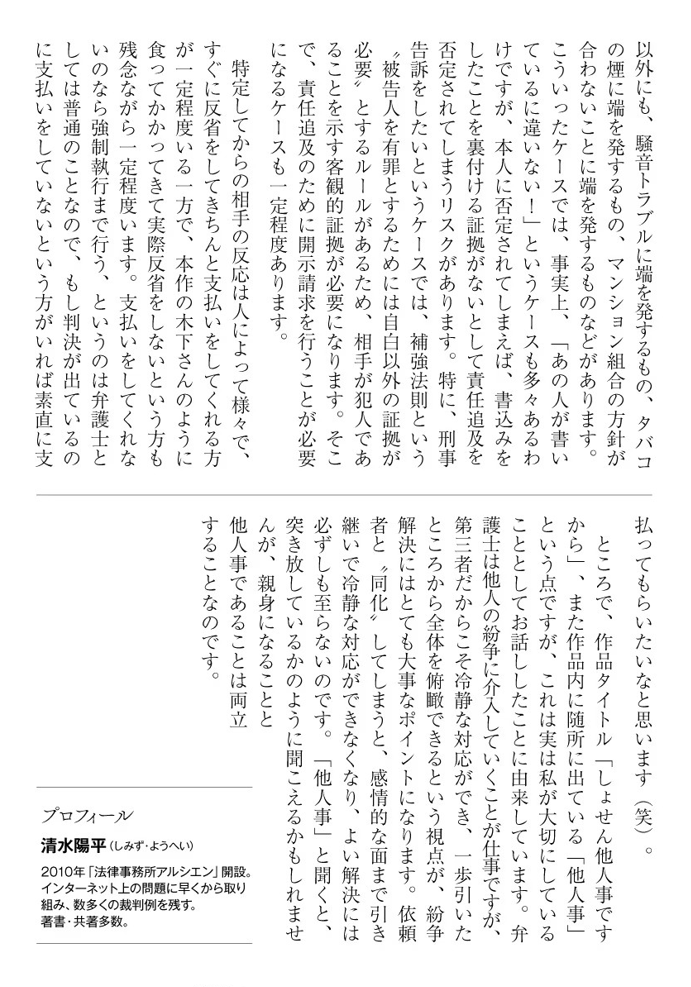 以外にも、騒音トラブルに端を発するもの、タバコ
の煙に端を発するもの、マンション組合の方針が
合わないことに端を発するものなどがあります。
こういったケースでは、事実上、「あの人が書い
ているに違いない！」というケースも多々あるわ
けですが、本人に否定されてしまえば、書込みを
したことを裏付ける証拠がないとして責任追及を
否定されてしまうリスクがあります。特に、刑事
告訴をしたいというケースでは、補強法則という
〝被告人を有罪とするためには自白以外の証拠が
必要〟とするルールがあるため、相手が犯人であ
ることを示す客観的証拠が必要になります。そこ
で、責任追及のために開示請求を行うことが必要
になるケースも一定程度あります。
　特定してからの相手の反応は人によって様々で、
すぐに反省をしてきちんと支払いをしてくれる方
が一定程度いる一方で、本作の木下さんのように
食ってかかってきて実際反省をしないという方も
残念ながら一定程度います。支払いをしてくれな
いのなら強制執行まで行う、というのは弁護士と
しては普通のことなので、もし判決が出ているの
に支払いをしていないという方がいれば素直に支
払ってもらいたいなと思います（笑）。
　ところで、作品タイトル「しょせん他人事です
から」、また作品内に随所に出ている「他人事」
という点ですが、これは実は私が大切にしている
こととしてお話ししたことに由来しています。弁
護士は他人の紛争に介入していくことが仕事ですが、
第三者だからこそ冷静な対応ができ、一歩引いた
ところから全体を俯瞰できるという視点が、紛争
解決にはとても大事なポイントになります。依頼
者と〝同化〟してしまうと、感情的な面まで引き
継いで冷静な対応ができなくなり、よい解決には
必ずしも至らないのです。「他人事」と聞くと、
突き放しているかのように聞こえるかもしれませ
んが、親身になることと
他人事であることは両立
することなのです。
プロフィール
清水陽平（しみず・ようへい）
2010年「法律事務所アルシエン」開設。
インターネット上の問題に早くから取り
組み、数多くの裁判例を残す。
著書・共著多数。